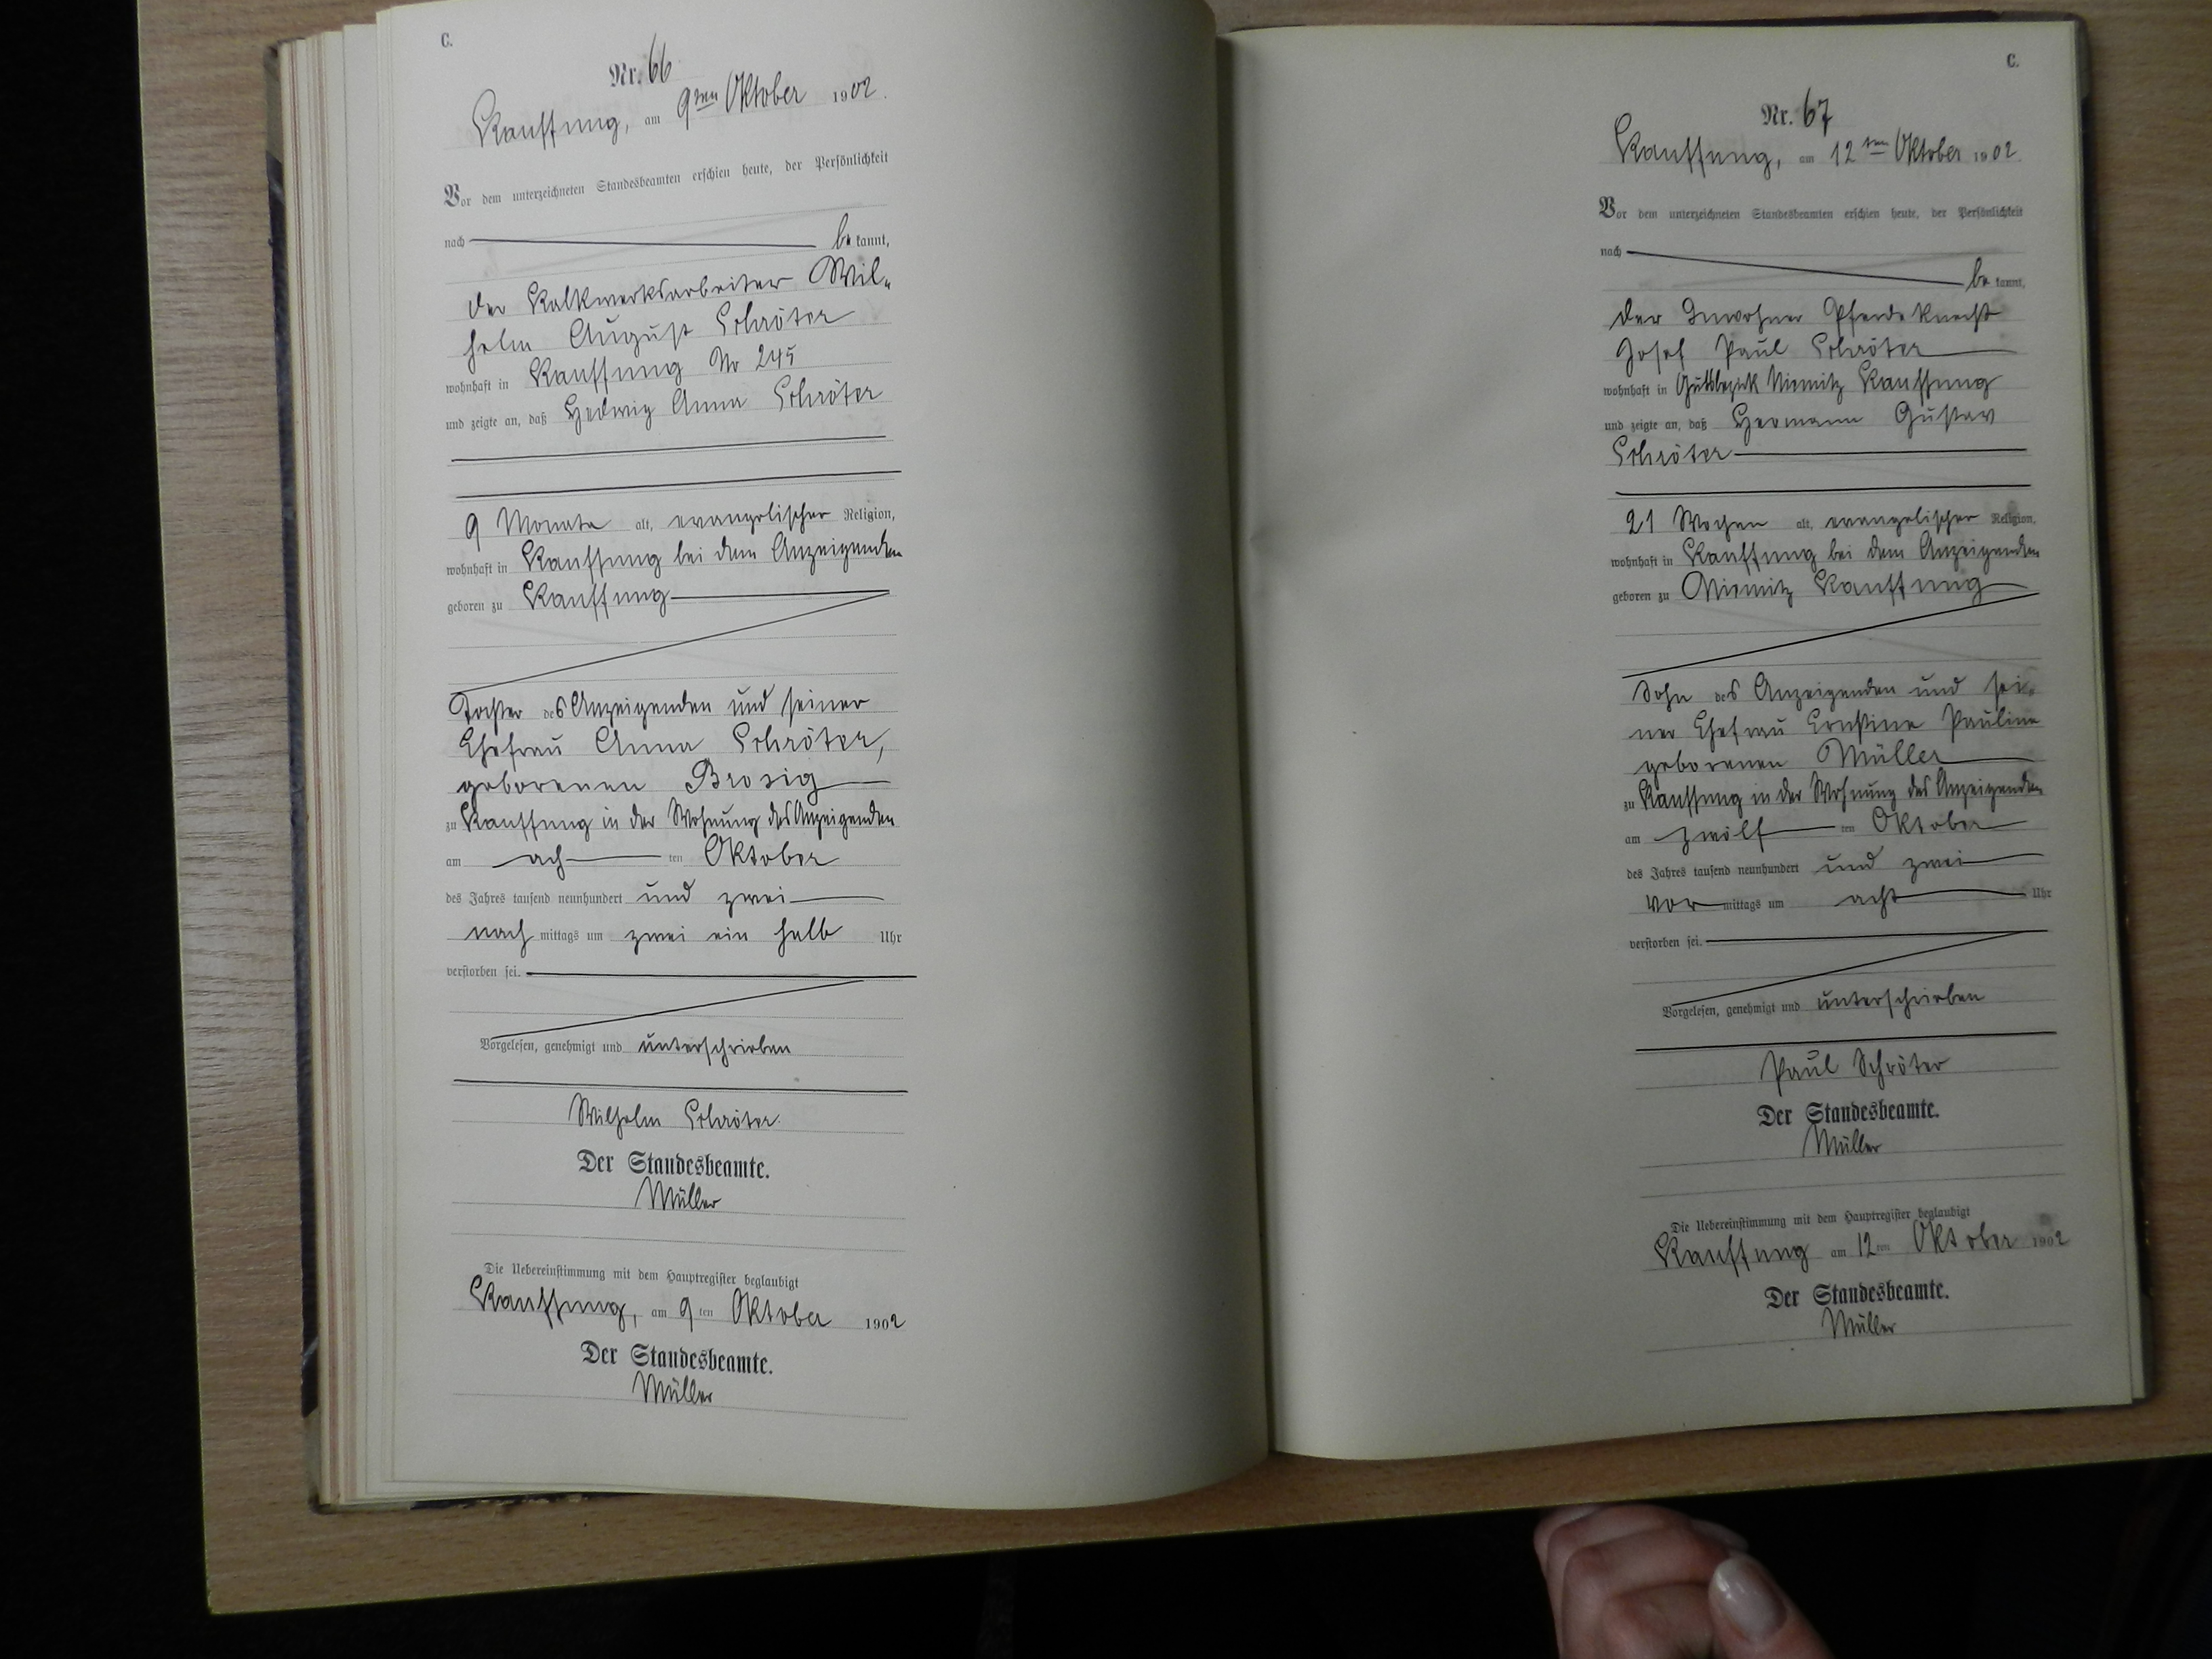 C.
Nr. 66
Kauffung, am 9ten Oktober 1902.
Vor dem unterzeichneten Standesbeamten erschien heute, der Persönlichkeit
nach be kannt,
der Kalkwerksarbeiter Wil-
helm August Schröter
wohnhaft in Kauffung No 245
und zeigte an, daß Hedwig Anna Schröter
9 Monate alt, evangelischer Religion,
wohnhaft in Kauffung bei dem Anzeigenden
geboren zu Kauffung
Tochter des Anzeigenden und seiner
Ehefrau Anna Schröter,
geborenen Brosig
zu Kauffung in der Wohnung des Anzeigenden
am ach ten Oktober
des Jahres tausend neunhundert und zwei
nach mittags um zwei ein halb Uhr
verstorben sei.
Vorgelesen, genehmigt und unterschrieben
Wilhelm Schröter.
Der Standesbeamte.
Müller
Die Uebereinstimmung mit dem Hauptregister beglaubigt
Kauffung, am 9 ten Oktober 1902
Der Standesbeamte.
Müller
C.
Nr. 67
Kauffung, am 12ten Oktober 1902.
Vor dem unterzeichneten Standesbeamten erschien heute, der Persönlichkeit
nach
be kannt,
der Inwohner Pferdeknecht
Josef Paul Schröter
wohnhaft in Gutsbezirk Niemitz Kauffung
und zeigte an, daß Hermann Gustav
Schröter
21 Wochen alt, evangelischer Religion,
wohnhaft in Kauffung bei dem Anzeigenden
geboren zu Niemitz Kauffung
Sohn des Anzeigenden und sei-
ner Ehefrau Ernstine Pauline
geborenen Müller
zu Kauffung in der Wohnung des Anzeigenden
am zwölf ten Oktober
des Jahres tausend neunhundert und zwei
vor mittags um acht Uhr
verstorben sei.
Vorgelesen, genehmigt und unterschrieben
Paul Schröter
Der Standesbeamte.
Müller
Die Uebereinstimmung mit dem Hauptregister beglaubigt
Kauffung am 12 ten Oktober 1902
Der Standesbeamte.
Müller